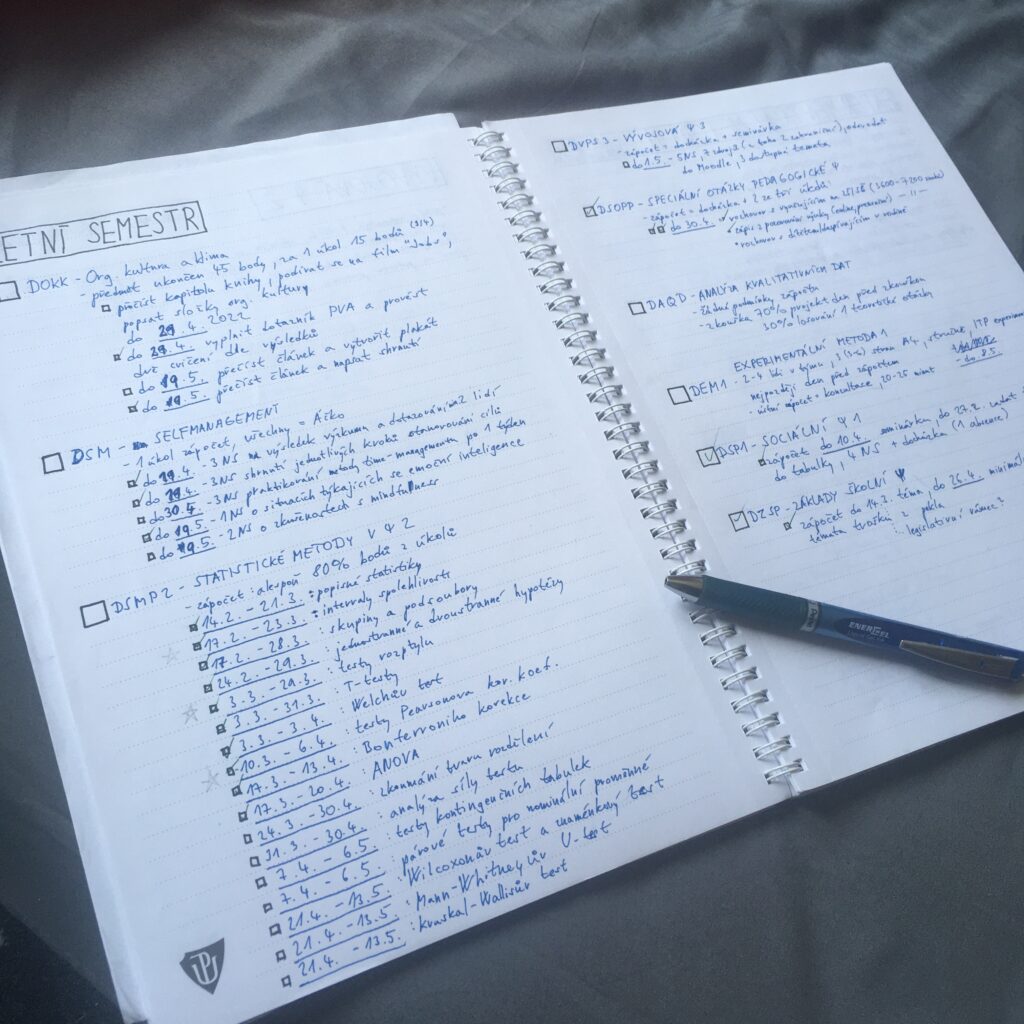 LETNÍ SEMESTR
DOKK - Org. kultura a klima
- předmět ukončen 45 body, za 1 úkol 15 bodů (3/4)
přečíst kapitolu knihy, podívat se na film "Jobs",
popsat složky org. kultury
do 29.4. 2022
do 29.4. vyplnit dotazník PVA a provést
dvě cvičení dle výsledků
do 19.5. přečíst článek a vytvořit plakát
do 19.5. přečíst článek a napsat shrnutí
DSM - SELFMANAGEMENT
- 1 úkol zápočet, všechny = Áčko
do 19.4. - 3NS na výsledek výzkumu a dotazování 2 lidí
do 19.4. - 3NS shrnutí jednotlivých kroků stanovování cílů
do 30.4. - 3NS praktikování metody time-managementu po 1 týden
do 19.5. - 1NS o situacích týkajících se emoční inteligence
do 19.5. - 2NS o zkušenostech s mindfulness
DSMP2 - STATISTICKÉ METODY V Ψ 2
- zápočet: alespoň 80% bodů z úkolů
14.2. - 21.3. : popisné statistiky
17.2. - 23.3. : intervaly spolehlivosti
17.2. - 28.3. : skupiny a podsoubory
24.2. - 29.3. : jednostranné a dvoustranné hypotézy
3.3. - 29.3. : testy rozptylu
3.3. - 31.3. : T-testy
3.3. - 3.4. : Welchův test
10.3. - 6.4. : testy Pearsonova kor. koef.
17.3. - 13.4. : Bonferroniho korekce
17.3. - 20.4. : ANOVA
24.3. - 30.4. : zkoumání tvaru rozdělení
31.3. - 30.4. : analýza síly testu
7.4. - 6.5. : testy kontingenčních tabulek
7.4. - 6.5. : párové testy pro nominální proměnné
21.4. - 13.5. : Wilcoxonův test a znaménkový test
21.4. - 13.5. : Mann-Whitneyův U-test
21.4. - 13.5. : Kruskal-Wallisův test
UP
DVPS3 - VÝVOJOVÁ Ψ 3
- zápočet = docházka + seminárka
do 1.5. - 5NS, 7 zdrojů (z toho 2 zahraniční), odevzdat
do Moodle, 3 dostupná témata
DSOPP - SPECIÁLNÍ OTÁZKY PEDAGOGICKÉ Ψ
- zápočet = docházka + 2 ze tří úkolů:
do 30.4. rozhovor s vyučujícím na ZŠ/SŠ (3600-7200 znaků)
zápis z pozorování výuky
rozhovor s dítětem/dospívajícím v rodině
DAQD - ANALÝZA KVALITATIVNÍCH DAT
- žádné podmínky zápočtu
- zkouška 70% projekt den před zkouškou
30% losování 1 teoretické otázky
EXPERIMENTÁLNÍ METODA 1
DEM1 - 2-4 lidi v týmu, 3 (3-4) stran A4, stručné, ITP experiment
nejpozději den před zápočtem do 8.5.
- ústní zápočet = konzultace, 20-25 minut
DSP1 - SOCIÁLNÍ Ψ 1
zápočet do 10.4. seminárka, do 27.2. zadat
do tabulky, 4 NS + docházka (1 absence)
DZSP - ZÁKLADY ŠKOLNÍ Ψ
zápočet do 14.3. téma do 26.4. minimálně
témata trošku z pekla .. legislativní rámec?
Pentel
ENERGEL